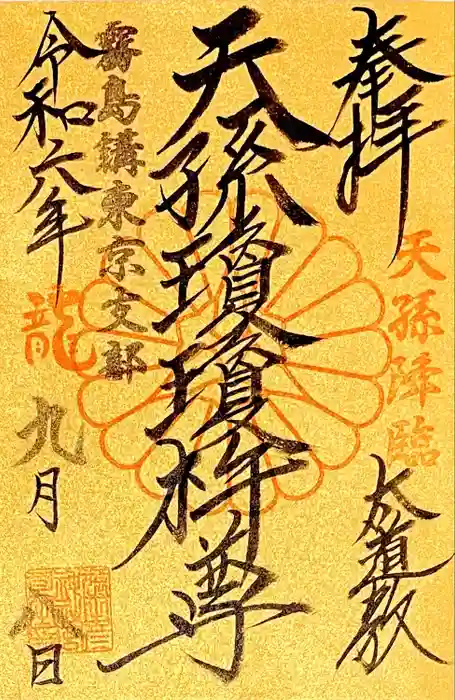 奉拝
天孫降臨
大道教
天孫瓊瓊杵尊
霧島講東京支部
令和六年
龍
九月
八日